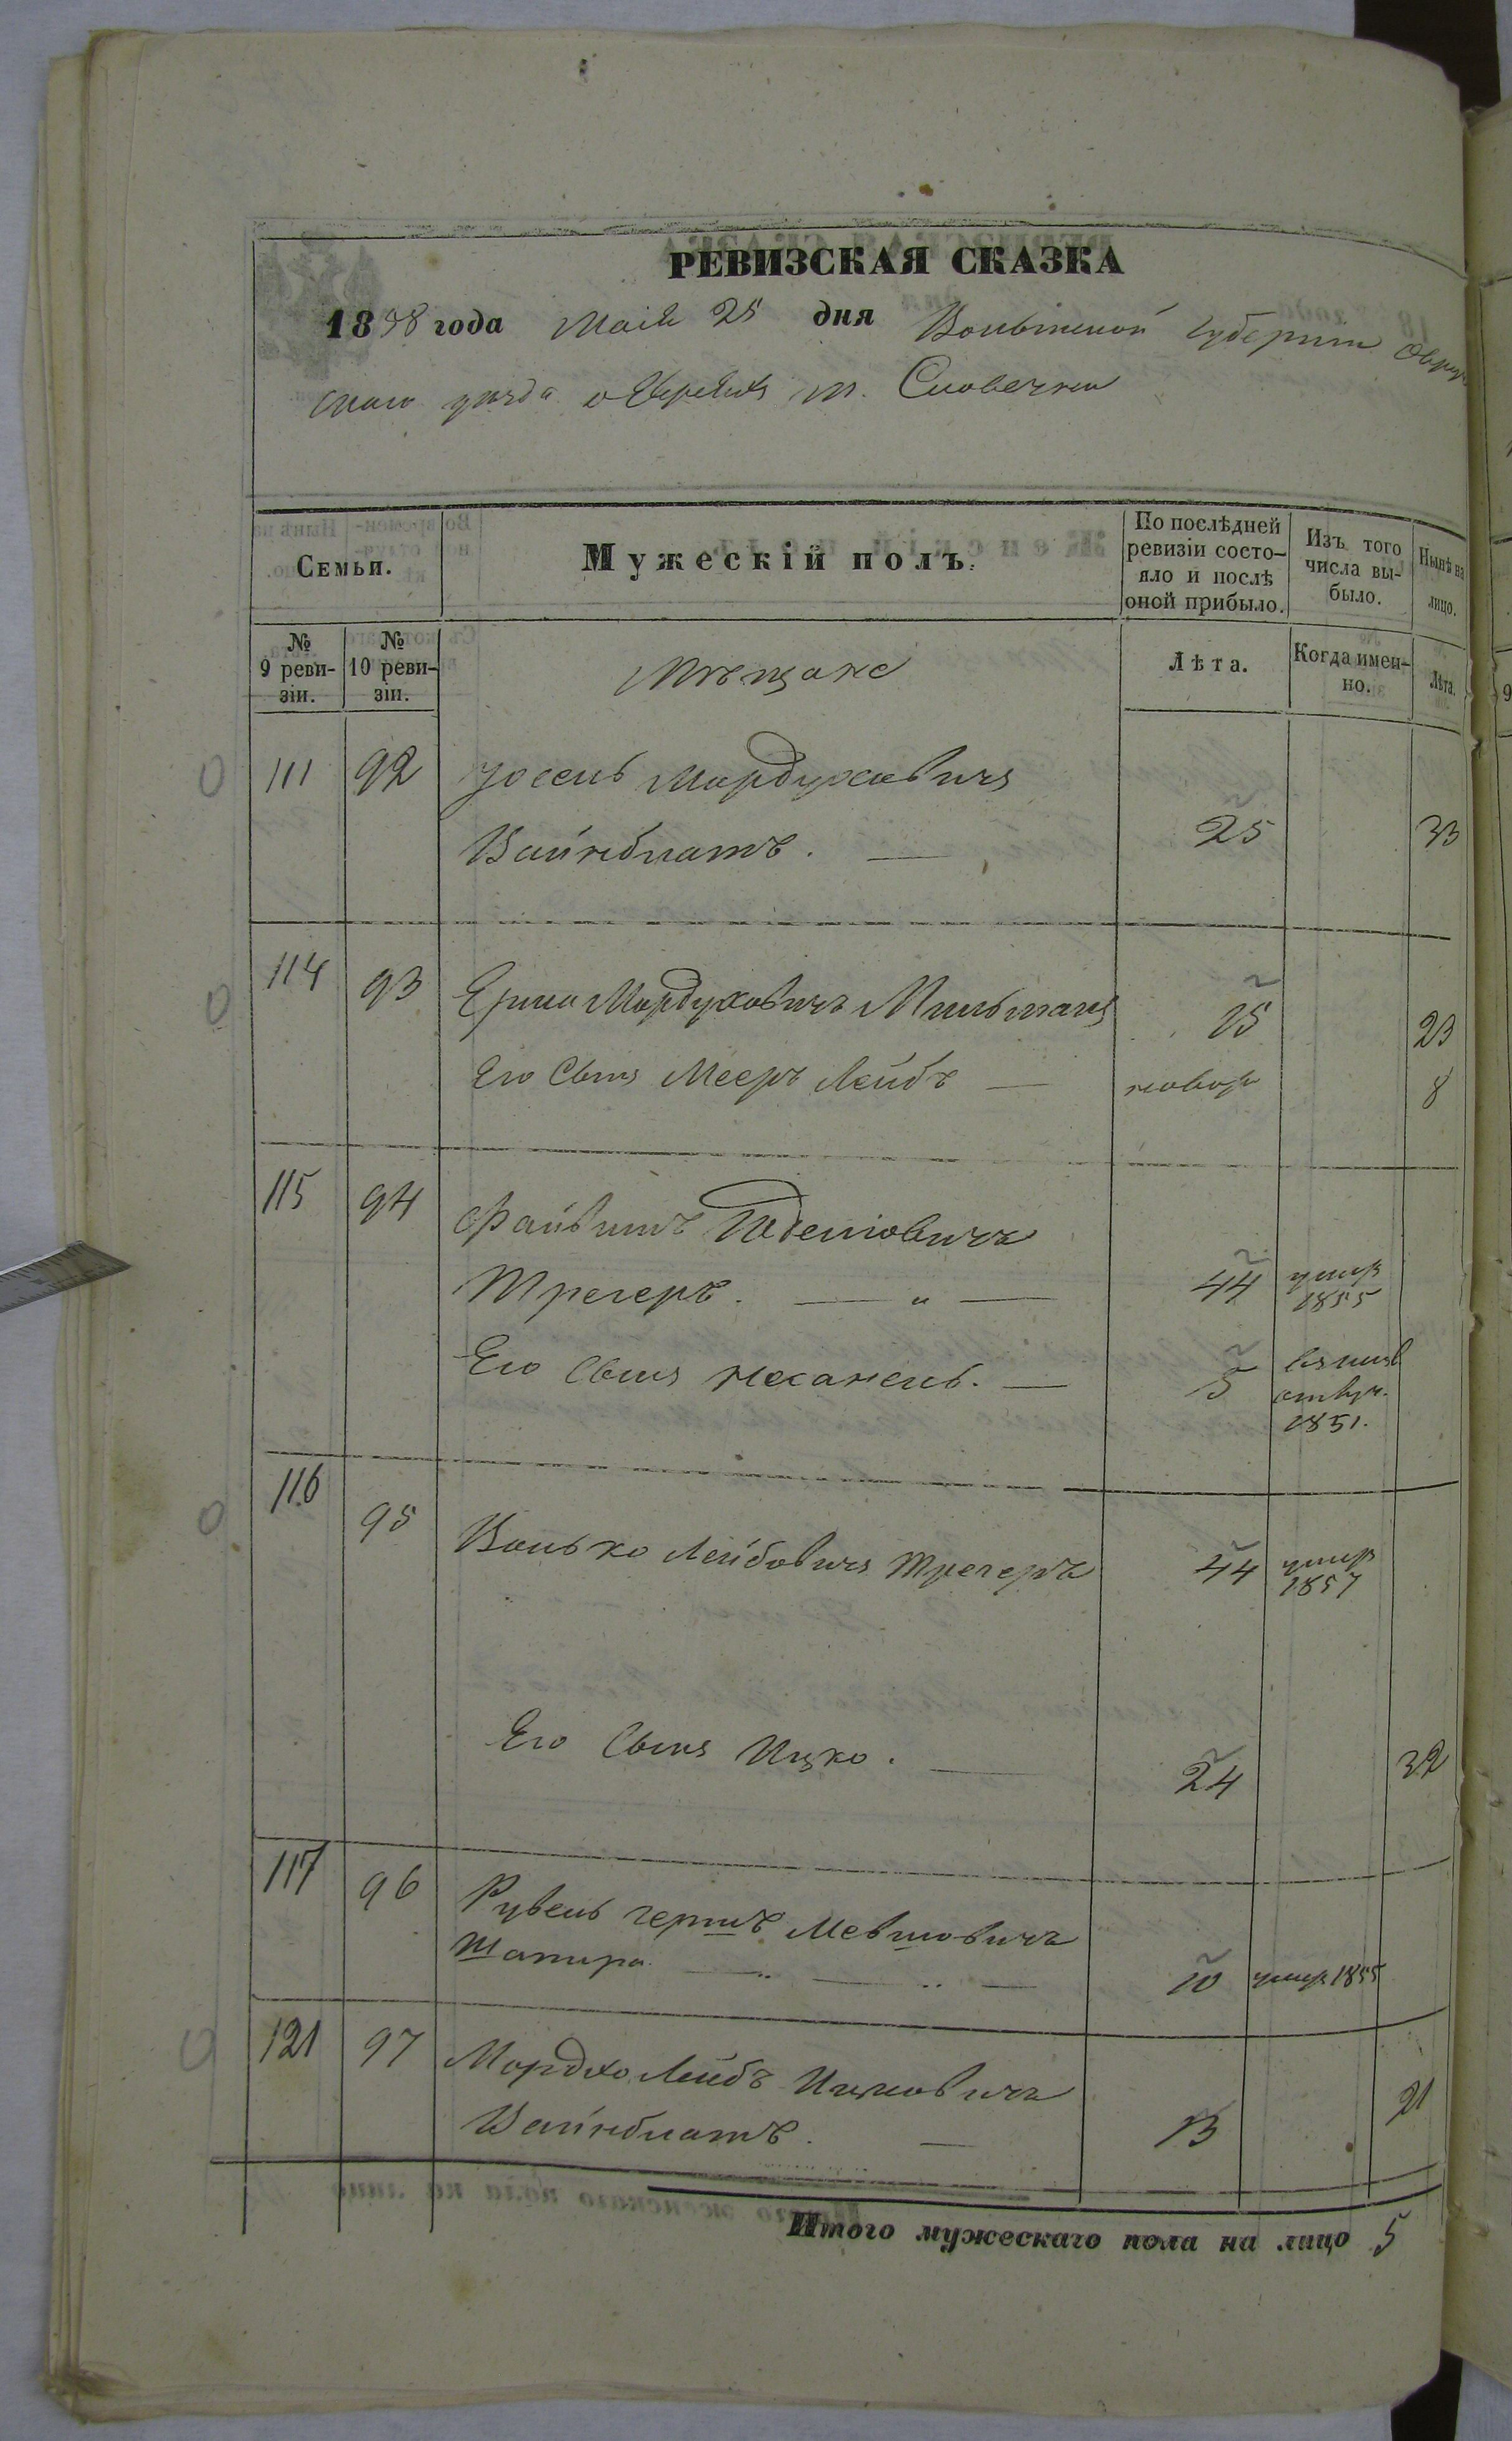 РЕВИЗСКАЯ СКАЗКА
1858 года Маія 25 дня Волынской Губерніи Овруч
скаго уѣзда о Евреяхъ м. Словечна
Семьи.
Мужескій полъ.
По послѣдней ревизіи состо-яло и послѣ оной прибыло.
Изъ того числа вы-было.
Нынѣ на лицо.
№ 9 реви-зіи.
№ 10 реви-зіи.
Мѣщане
Лѣта.
Когда имен-но.
Лѣта.
111 92 Іосель Мордуховичъ
Вайнблатъ. 25 33
114 93 Мордуховичъ Мильманъ 15 23
Его Сынъ Мееръ Лейбъ новор 8
115 94 Файвишъ
Трегеръ. 44 умер 1855
Его Сынъ Механель. 5 1851.
116 95 Волько Лейбовичъ Трегеръ 44 умер 1857
Его Сынъ Ицко. 24 32
117 96 Рувень Гершъ Мевшовичъ
Шапира 10 умер 1855
121 97 Мордхо Лейбъ Ицковичъ
Вайнблатъ. 13 21
Итого мужескаго пола на лицо 5